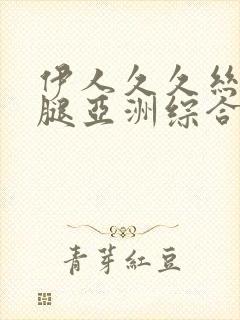 伊人久久丝
腿亞洲综合
青芽紅豆